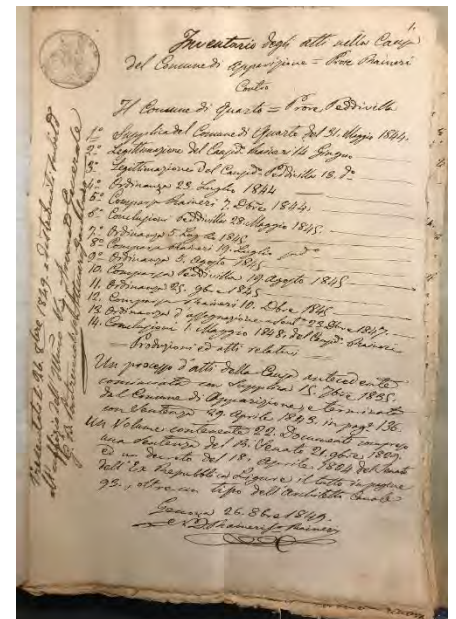 1.
Inventario degli atti nella Causa
del Comune di Apparizione = Proc.e Raineri
Contro
Il Comune di Quarto = Proc.e Peddivilla
1.° Supplica del Comune di Quarto del 31. Maggio 1844.
2.° Legittimazione del Causid.° Raineri 14 Giugno
3.° Legittimazione del Causid.° Peddivilla 18. d.°
4.° Ordinanza 23. Luglio 1844
5.° Comparsa Raineri 7. Dbre 1844.
6.° Conclusioni Peddivilla 28. Maggio 1845.
7.° Ordinanza 5. Luglio 1845
8.° Comparsa Raineri 19. Luglio
9.° Ordinanza 5. Agosto 1845
10. Comparsa Peddivilla 14. Agosto 1845
11. Ordinanza 25. 9bre 1845
12. Comparsa Raineri 10. Dbre 1845
13. Ordinanza d'assegnazione a 23. Dbre 1847.
14. Conclusioni 1. Maggio 1848. del Causid.° Raineri
Produzioni ed atti relativi
Un processo d'atti della Causa antecedente
cominciato con Supplica 15. 1835.
del Comune di Apparizione, e terminato
con Sentenza 29. Aprile 1843. in pag.e 136.
Un Volume contenente 22. Documenti compreso
una Sentenza del 21. 9bre 1809.
ed un decreto del 18. Aprile 1804 del Senato
dell'Ex Repubblica Ligure il tutto in pagine
93., oltre un tipo dell'Architetto Canale
Genova 26. 8bre 1849.
Raineri
Presentato li 26. 8bre 1849